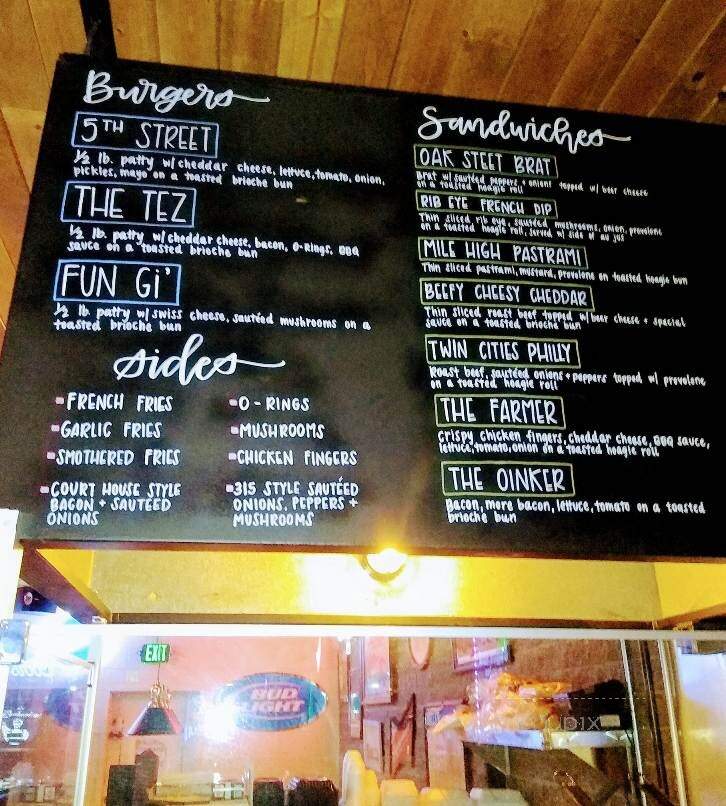 Burgers
5TH STREET
½ lb. patty w/cheddar cheese, lettuce, tomato, onion,
pickles, mayo on a toasted brioche bun
THE TEZ
½ lb. patty w/cheddar cheese, bacon, O-Rings, BBQ
sauce on a toasted brioche bun
FUN Gi'
½ lb. patty w/swiss cheese, sautéed mushrooms on a
toasted brioche bun
Sides
FRENCH FRIES
GARLIC FRIES
SMOTHERED FRIES
COURT HOUSE STYLE
BACON + SAUTÉED
ONIONS
O-RINGS
MUSHROOMS
CHICKEN FINGERS
315 STYLE SAUTÉED
ONIONS, PEPPERS +
MUSHROOMS
Sandwiches
OAK STEET BRAT
Brat w/ sautéed peppers + onions topped w/ beer cheese
on a toasted hoagie roll
RIB EYE FRENCH DIP
Thin sliced rib eye, sautéed mushrooms, onion, provolone
on a toasted hoagie roll, served w/ side of au jus
MILE HIGH PASTRAMI
Thin sliced pastrami, mustard, provolone on toasted hoagie bun
BEEFY CHEESY CHEDDAR
Thin sliced roast beef topped w/beer cheese + special
sauce on a toasted brioche bun
TWIN CITIES PHILLY
Roast beef, sautéed onions + peppers topped w/ provolone
on a toasted hoagie roll
THE FARMER
Crispy chicken fingers, cheddar cheese, BBQ sauce,
lettuce, tomato, onion on a toasted hoagie roll
THE OINKER
Bacon, more bacon, lettuce, tomato on a toasted
brioche bun
EXIT
BUD
LIGHT